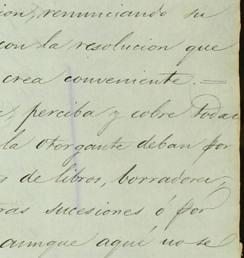 cion, renunciando su
con la resolucion que
crea conveniente. =
perciba y cobre todas
la otorgante deban por
de libros, borradores,
sucesiones ó por
aunque aquí no se